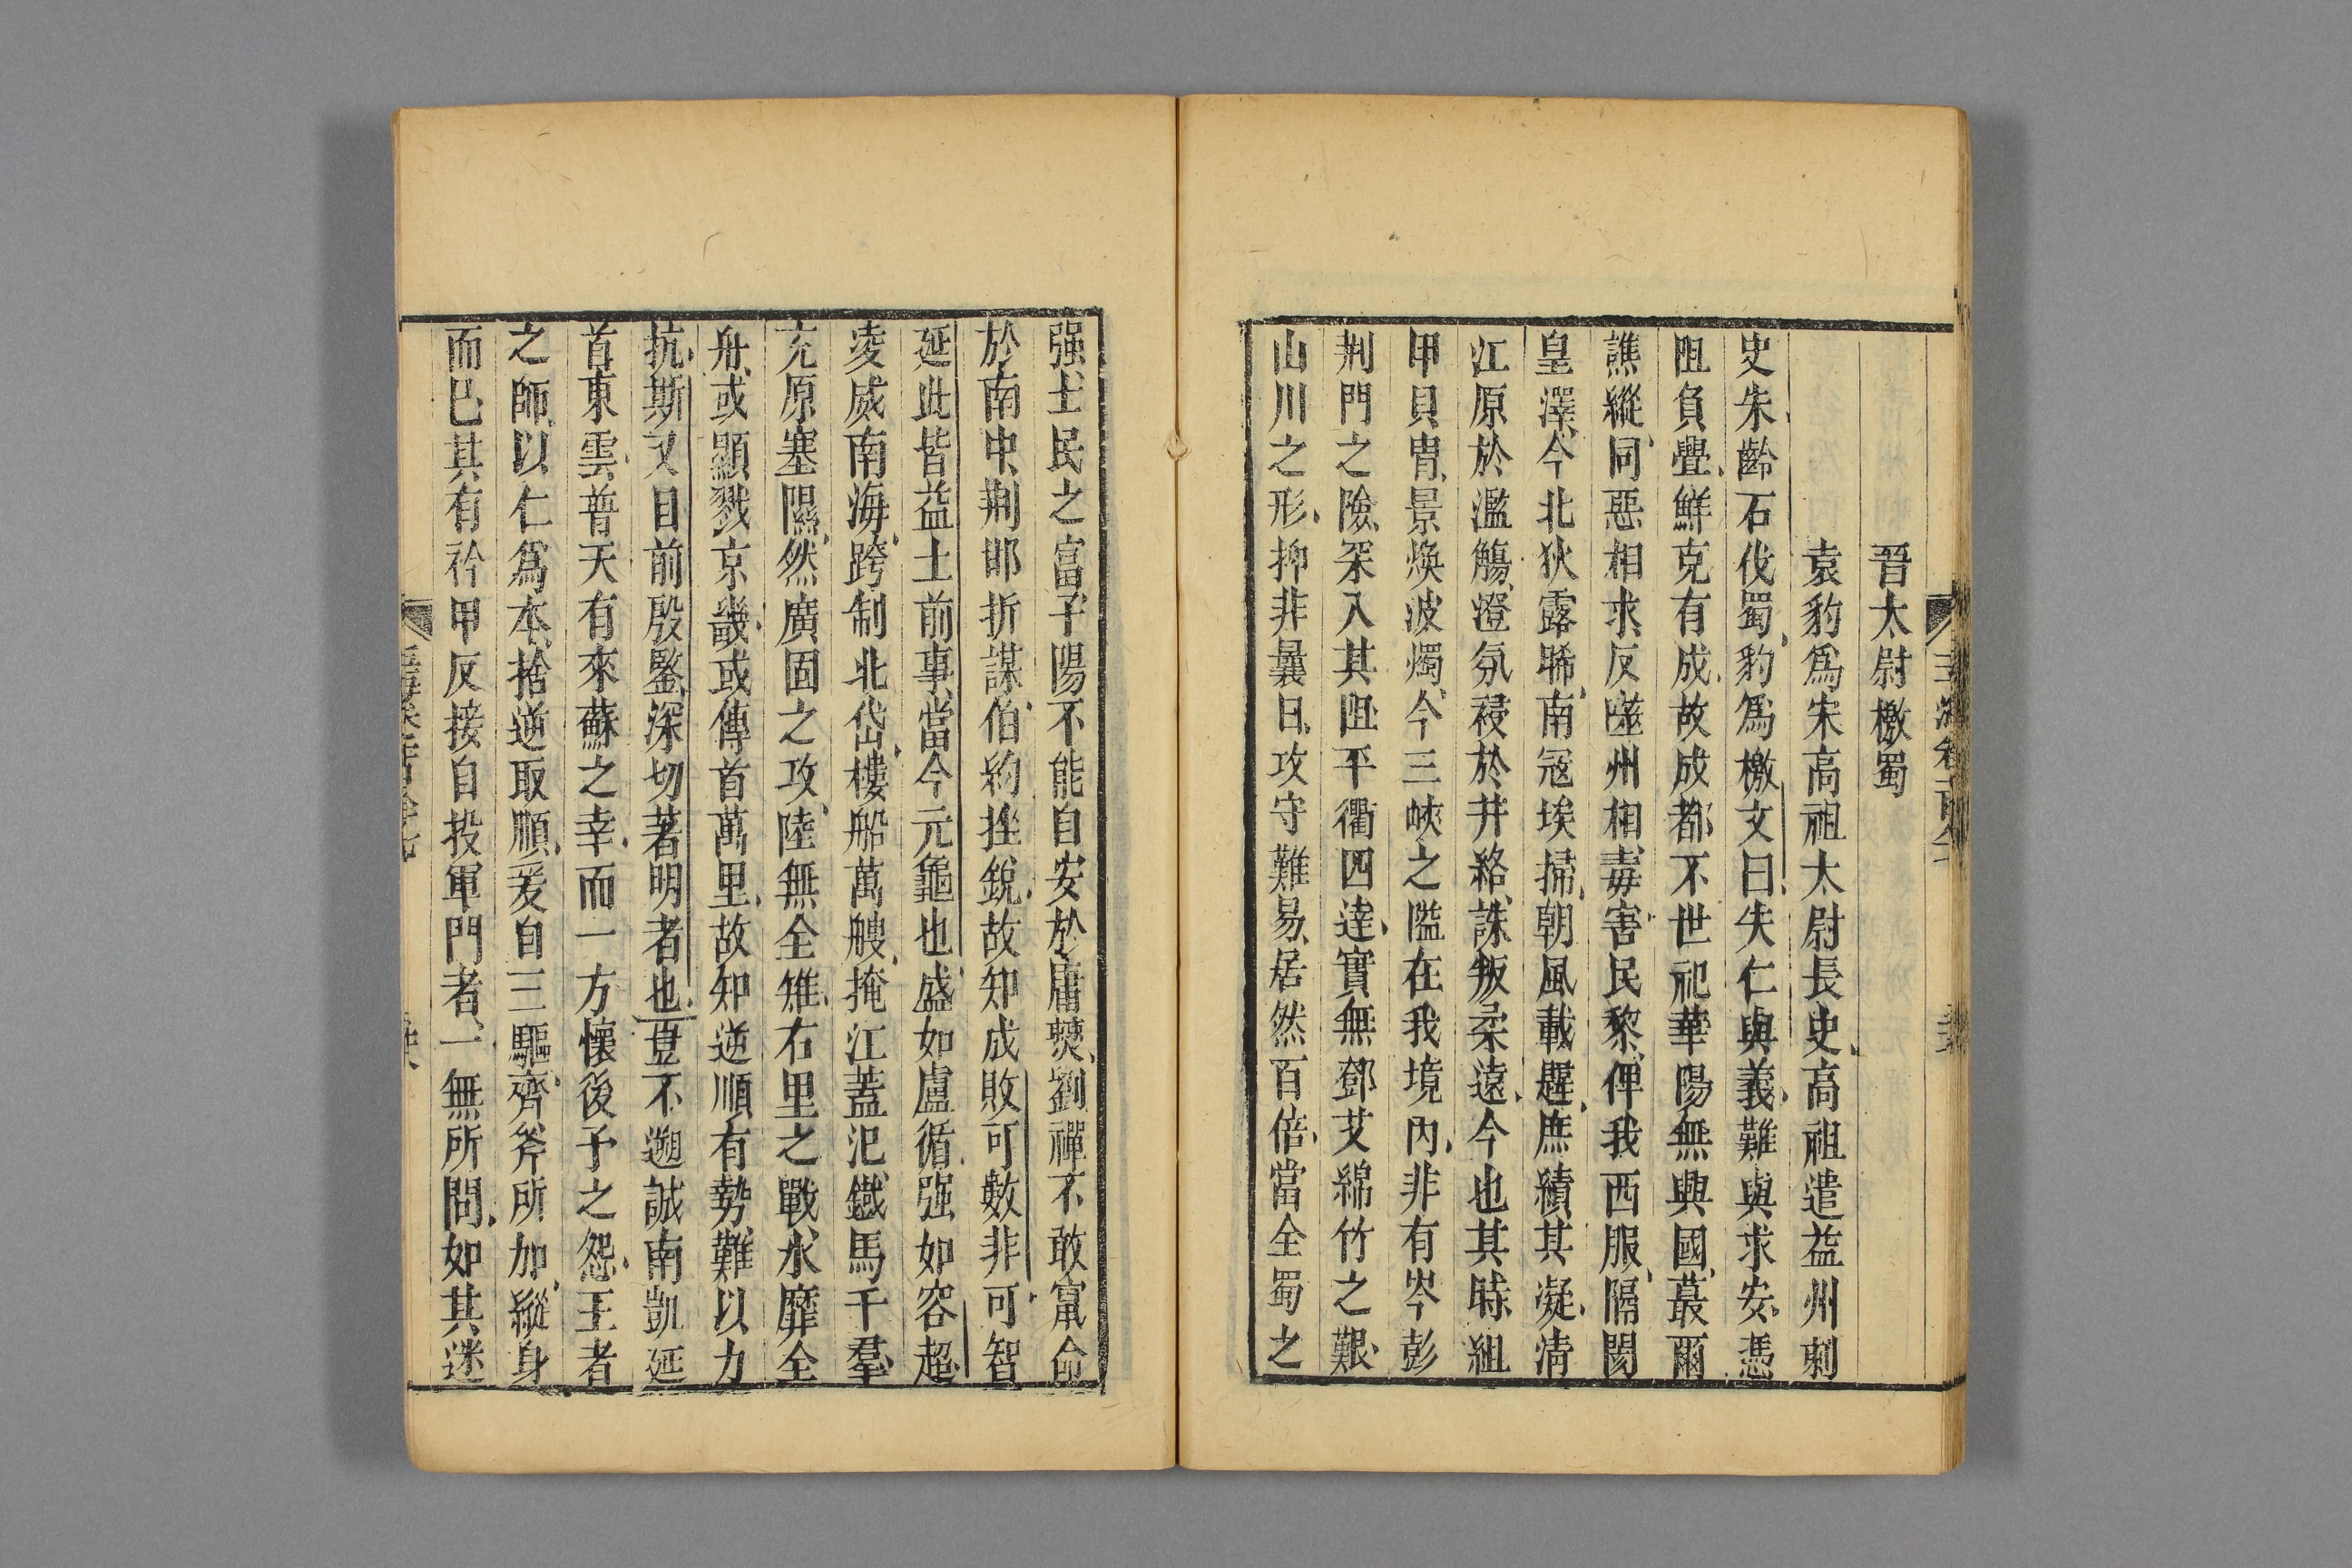 晉太尉檄蜀
袁豹爲宋高祖太尉長史高祖遣益州刺
史朱齡石伐蜀豹爲檄文曰失仁與義難與求安憑
阻負釁鮮克有成故成都不世祀華陽無興國蕞爾
譙縱同惡相求反噬州相毒害民黎俾我西服隔閡
皇澤今北狄露晞南寇埃掃朝風載韙庶績其凝清
江原於濫觴澄氛祲於井絡誅叛柔遠今也其時組
甲貝胄景煥波燭今三峽之隘在我境內非有岑彭
荆門之險罙入其阻平衢四達實無鄧艾綿竹之艱
山川之形抑非曩日攻守難易居然百倍當全蜀之
强士民之富子陽不能自安於庸僰劉禪不敢窜命
於南中荆邯折謀伯約挫銳故知成敗可數非可智
延此皆益土前事當今元龜也盛如盧循强如容超
凌威南海跨制北岱樓船萬艘掩江蓋汜鐵馬千羣
充原塞隰然廣固之攻陸無全雉右里之戰水靡全
舟或顯戮京畿或傳首萬里故知逆順有勢難以力
抗斯又目前殷鑒深切著明者也豈不遡誠南凱延
首東雲普天有來蘇之幸而一方懷後予之怨王者
之師以仁爲本捨逆取順爰自三驅齊斧所加縱身
而巳其有衿甲反接自投軍門者一無所問如其迷